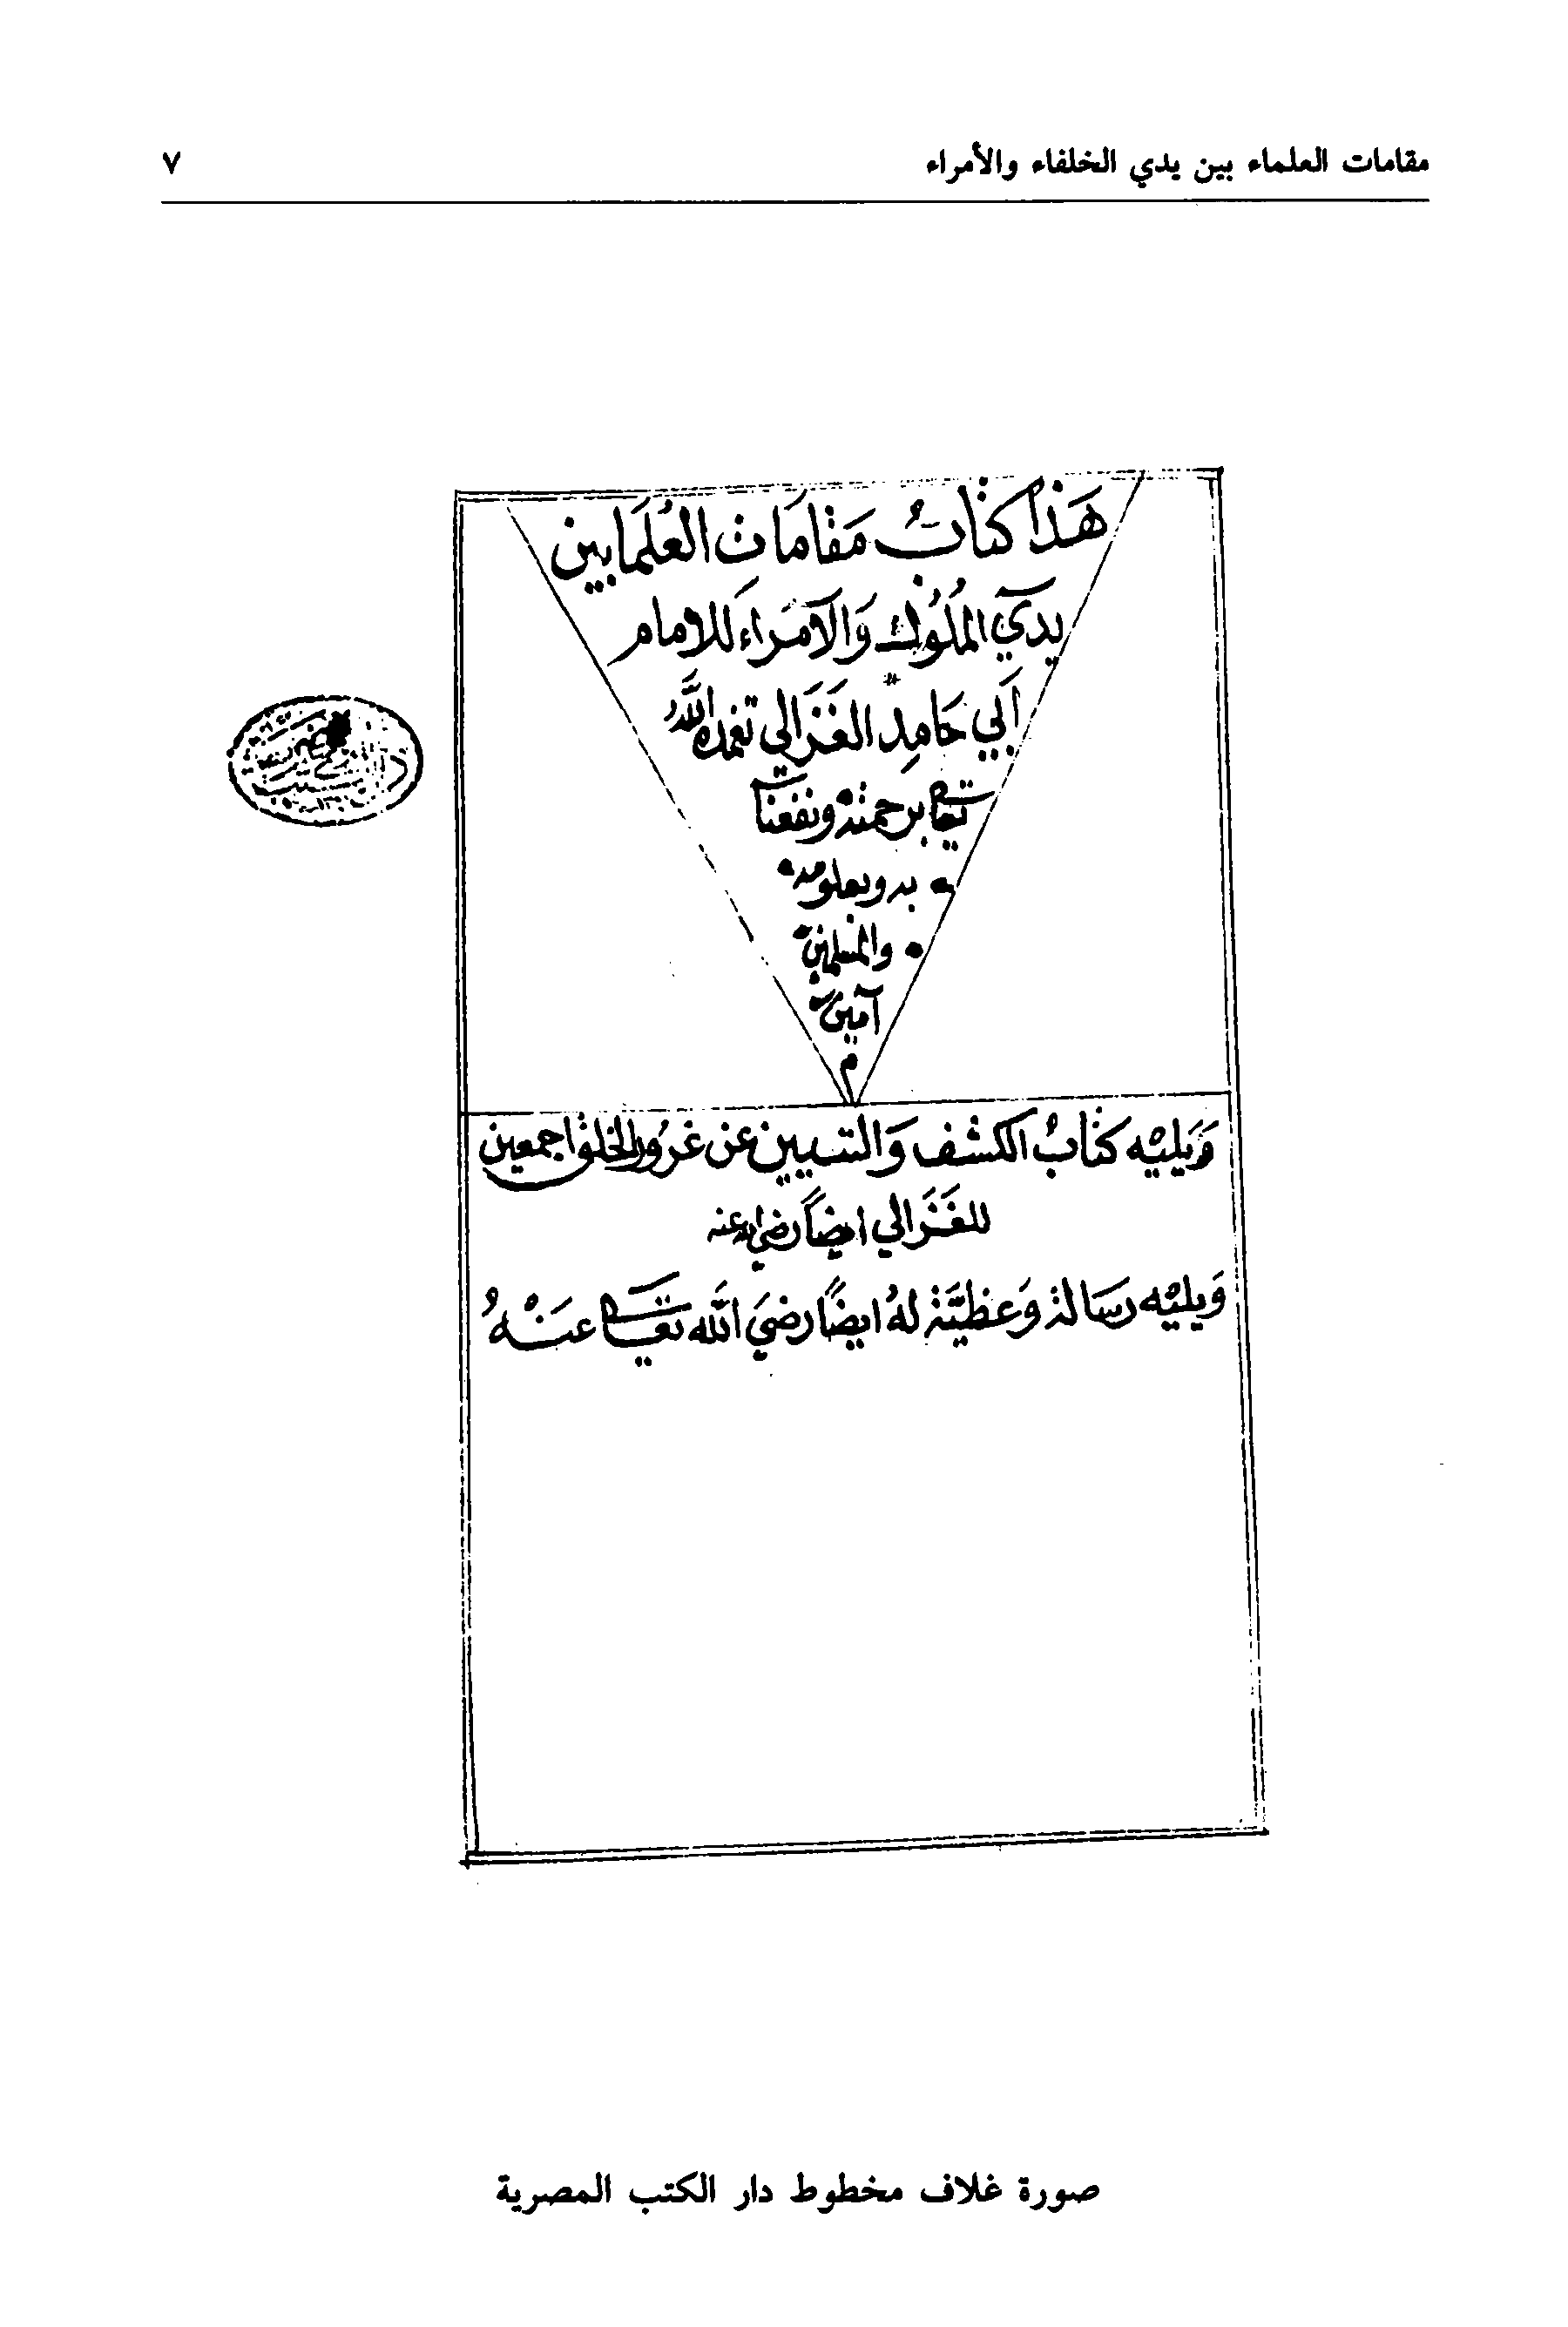 مقامات العلماء بين يدي الخلفاء والأمراء ٧
هَذا كتابُ مَقامَات العُلَما بين
يدَي المُلُوك وَالأمَراء للامام
اَبي حَامِد الغَزَالي تغمده اللهُ
تعالى برحمته ونفعنا
به وبعلومه
والمسلمين
آمين
م
وَيليه كتابُ الكشف وَالتبيين عن غرُور الخلق اجمعين
للغَزَالي ايضاً رضي الله عنه
وَيليه رسَالة وَعظيَّة لهُ ايضًا رضيَ الله تعالى عَنْهُ
صورة غلاف مخطوط دار الكتب المصرية